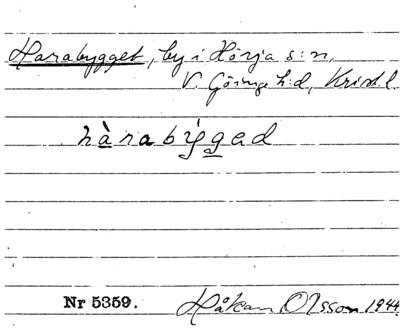 Harabygget, by i Hörja s:n,
V. Göinge h:d, Krist. l.
hàrabýgad
Nr 5359.
Håkan Olsson 1944.